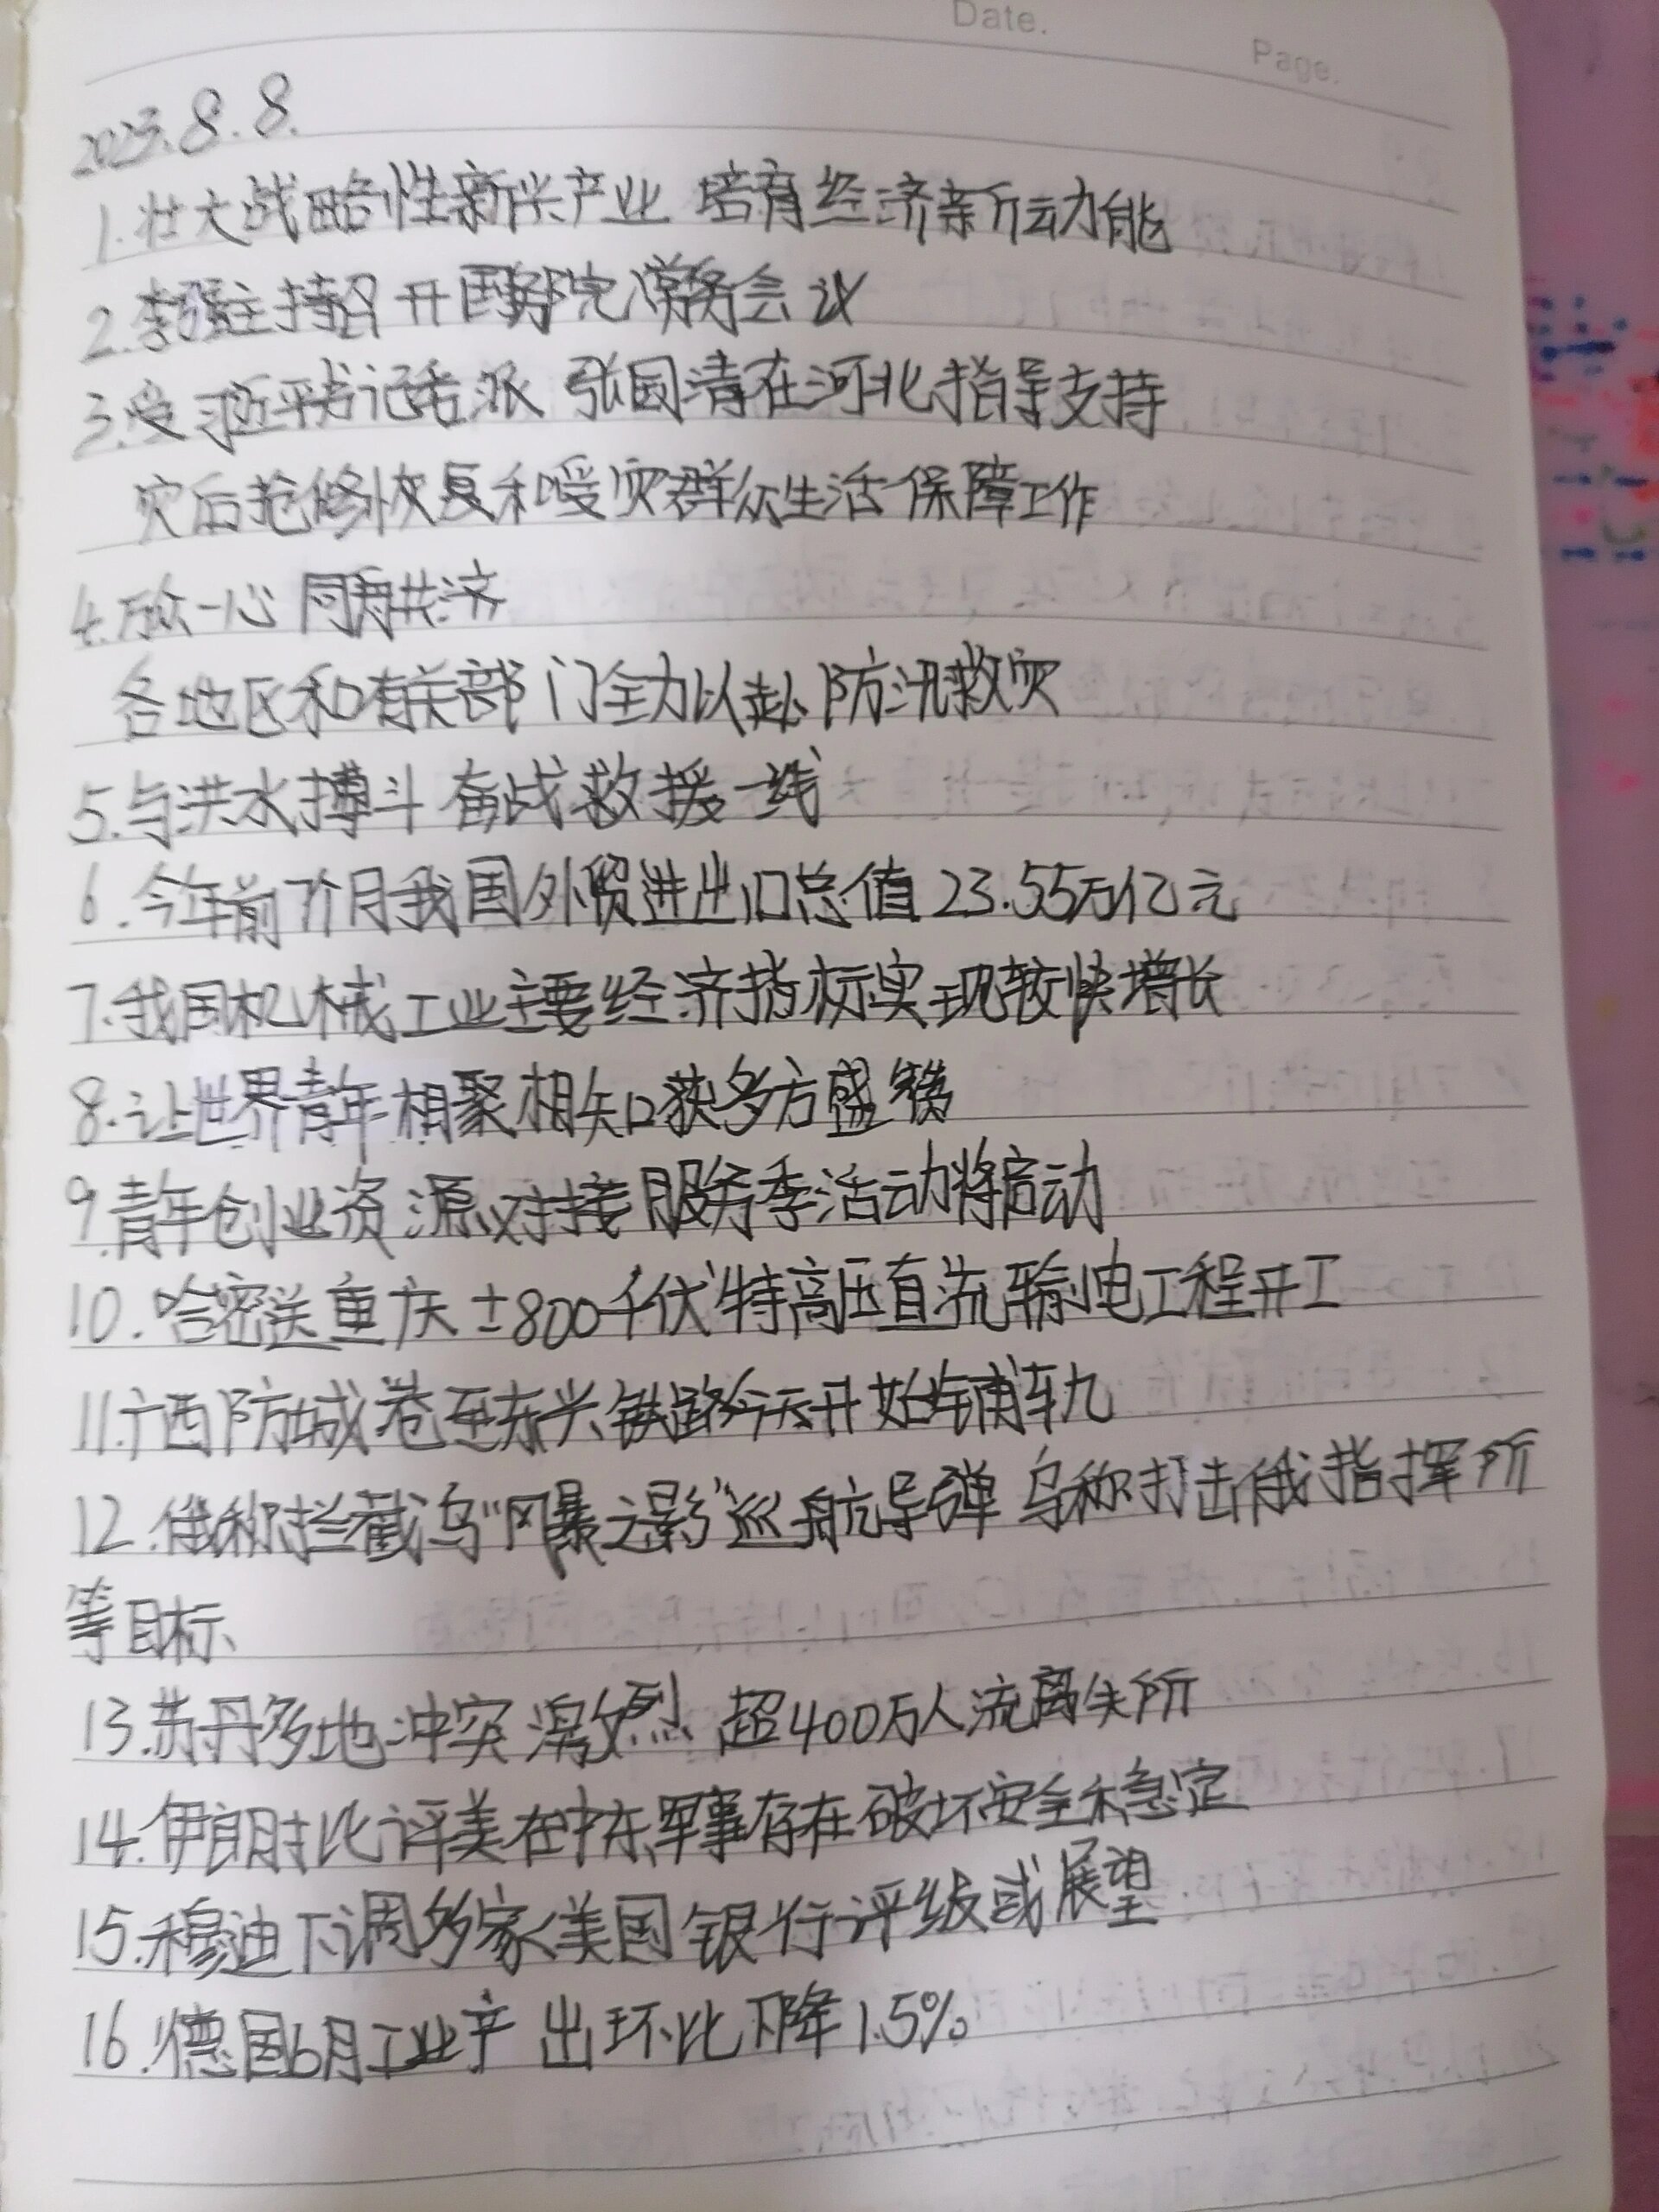 Date.
Page.
2023.8.8.
1.壮大战略性新兴产业 培育经济新动能
2.李强主持召开国务院常务会议
3.受习近平书记委派 张国清在河北指导支持
灾后抢修恢复和受灾群众生活保障工作
4.万众一心 同舟共济
各地区和有关部门全力以赴防汛救灾
5.与洪水搏斗 奋战救援一线
6.今年前7个月我国外贸进出口总值23.55万亿元
7.我国机械工业主要经济指标实现较快增长
8.让世界青年相聚相知 获多方盛赞
9.青年创业资源对接服务季活动将启动
10.哈密送重庆±800千伏特高压直流输电工程开工
11.广西防城港至东兴铁路今天开始铺轨
12.俄称拦截乌“风暴之影”巡航导弹 乌称打击俄指挥所
等目标
13.苏丹多地冲突激烈 超400万人流离失所
14.伊朗批评美在中东军事存在破坏安全和稳定
15.穆迪下调多家美国银行评级或展望
16.德国6月工业产出环比下降1.5%